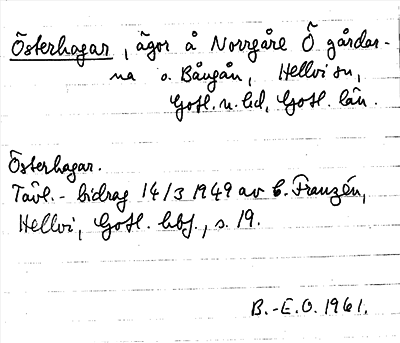 Österhagar, ägor å Norrgåre Ö gårdar-
na o. Bångån, Hellvi sn,
Gotl. n. hd, Gotl. län.
Österhagar.
Tävl.- bidrag 14/3 1949 av C. Franzén,
Hellvi, Gotl. hbf., s. 19.
B.-E.O. 1961.